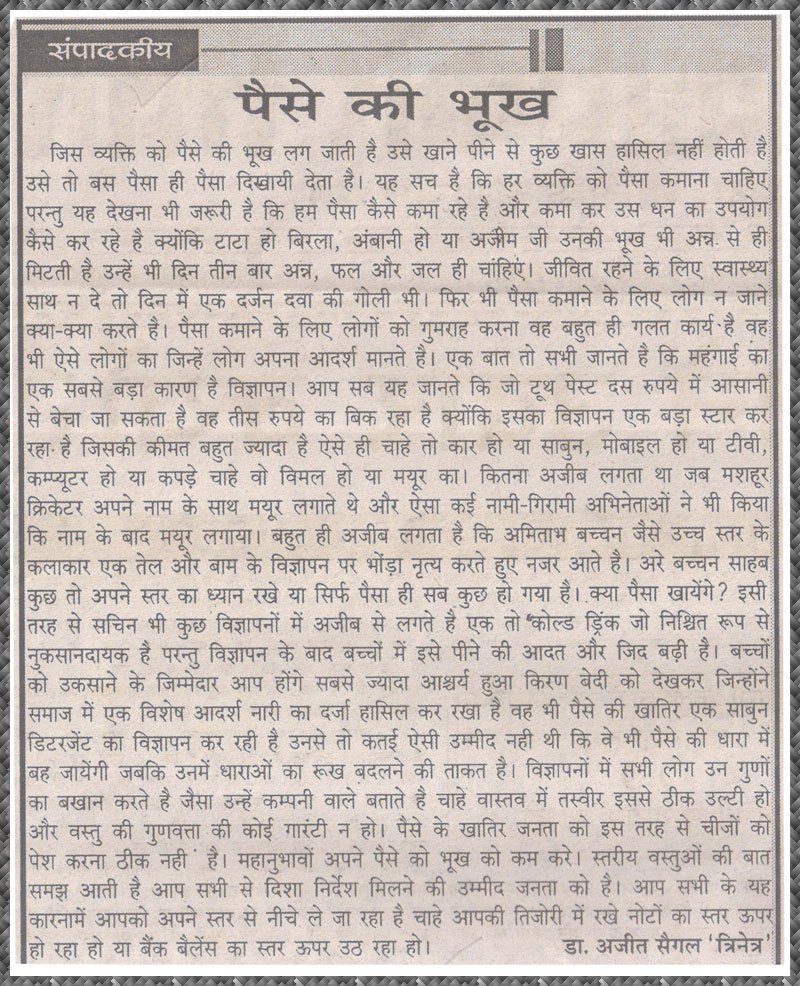 संपादकीय
पैसे की भूख
जिस व्यक्ति को पैसे की भूख लग जाती है उसे खाने पीने से कुछ खास हासिल नहीं होती है
उसे तो बस पैसा ही पैसा दिखायी देता है। यह सच है कि हर व्यक्ति को पैसा कमाना चाहिए
परन्तु यह देखना भी जरूरी है कि हम पैसा कैसे कमा रहे है और कमा कर उस धन का उपयोग
कैसे कर रहे है क्योंकि टाटा हो बिरला, अंबानी हो या अजीम जी उनकी भूख भी अन्न से ही
मिटती है उन्हें भी दिन तीन बार अन्न, फल और जल ही चांहिएं। जीवित रहने के लिए स्वास्थ्य
साथ न दे तो दिन में एक दर्जन दवा की गोली भी। फिर भी पैसा कमाने के लिए लोग न जाने
क्या-क्या करते है। पैसा कमाने के लिए लोगों को गुमराह करना वह बहुत ही गलत कार्य है वह
भी ऐसे लोगों का जिन्हें लोग अपना आदर्श मानते है। एक बात तो सभी जानते है कि महंगाई का
एक सबसे बड़ा कारण है विज्ञापन। आप सब यह जानते कि जो टूथ पेस्ट दस रुपये में आसानी
से बेचा जा सकता है वह तीस रुपये का बिक रहा है क्योंकि इसका विज्ञापन एक बड़ा स्टार कर
रहा है जिसकी कीमत बहुत ज्यादा है ऐसे ही चाहे तो कार हो या साबुन, मोबाइल हो या टीवी,
कम्प्यूटर हो या कपड़े चाहे वो विमल हो या मयूर का। कितना अजीब लगता था जब मशहूर
क्रिकेटर अपने नाम के साथ मयूर लगाते थे और ऐसा कई नामी-गिरामी अभिनेताओं ने भी किया
कि नाम के बाद मयूर लगाया। बहुत ही अजीब लगता है कि अमिताभ बच्चन जैसे उच्च स्तर के
कलाकार एक तेल और बाम के विज्ञापन पर भोंड़ा नृत्य करते हुए नजर आते है। अरे बच्चन साहब
कुछ तो अपने स्तर का ध्यान रखे या सिर्फ पैसा ही सब कुछ हो गया है। क्या पैसा खायेंगे? इसी
तरह से सचिन भी कुछ विज्ञापनों में अजीब से लगते है एक तो कोल्ड ड्रिंक जो निश्चित रूप से
नुकसानदायक है परन्तु विज्ञापन के बाद बच्चों में इसे पीने की आदत और जिद बढ़ी है। बच्चों
को उकसाने के जिम्मेदार आप होंगे सबसे ज्यादा आश्चर्य हुआ किरण बेदी को देखकर जिन्होंने
समाज में एक विशेष आदर्श नारी का दर्जा हासिल कर रखा है वह भी पैसे की खातिर एक साबुन
डिटरजेंट का विज्ञापन कर रही है उनसे तो कतई ऐसी उम्मीद नही थी कि वे भी पैसे की धारा में
बह जायेंगी जबकि उनमें धाराओं का रूख बदलने की ताकत है। विज्ञापनों में सभी लोग उन गुणों
का बखान करते है जैसा उन्हें कम्पनी वाले बताते है चाहे वास्तव में तस्वीर इससे ठीक उल्टी हो
और वस्तु की गुणवत्ता की कोई गारंटी न हो। पैसे के खातिर जनता को इस तरह से चीजों को
पेश करना ठीक नही है। महानुभावों अपने पैसे को भूख को कम करे। स्तरीय वस्तुओं की बात
समझ आती है आप सभी से दिशा निर्देश मिलने की उम्मीद जनता को है। आप सभी के यह
कारनामें आपको अपने स्तर से नीचे ले जा रहा है चाहे आपकी तिजोरी में रखे नोटों का स्तर ऊपर
हो रहा हो या बैंक बैलेंस का स्तर ऊपर उठ रहा हो। डा. अजीत सैगल 'त्रिनेत्र'